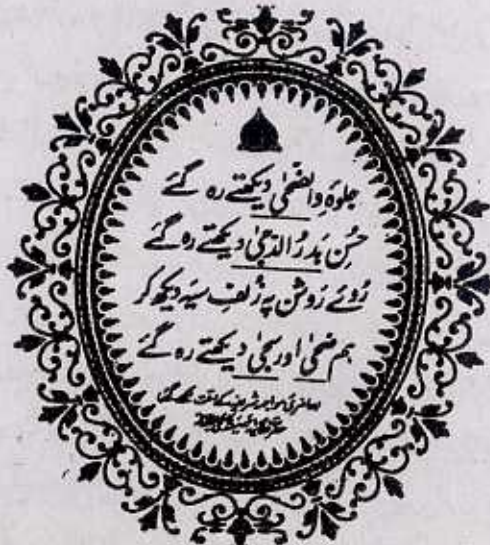 جلوۂ والضحیٰ دیکھتے رہ گئے
حُسنِ بَدرُ الدّجیٰ دیکھتے رہ گئے
رُوئے رَوشن پہ زُلفِ سِیَہ دیکھ کر
ہم ضحیٰ اور سجیٰ دیکھتے رہ گئے